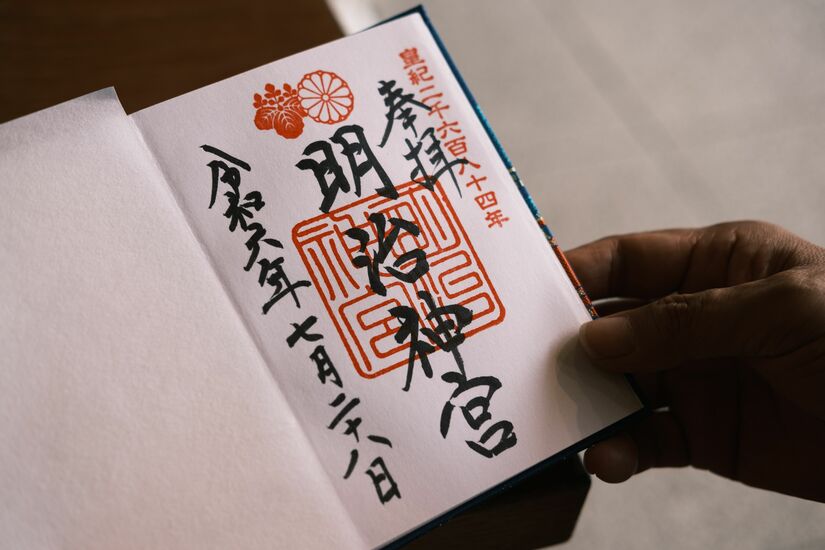 皇紀二千六百八十四年
奉拝
明治神宮
明治
神宮
令和六年七月二十八日